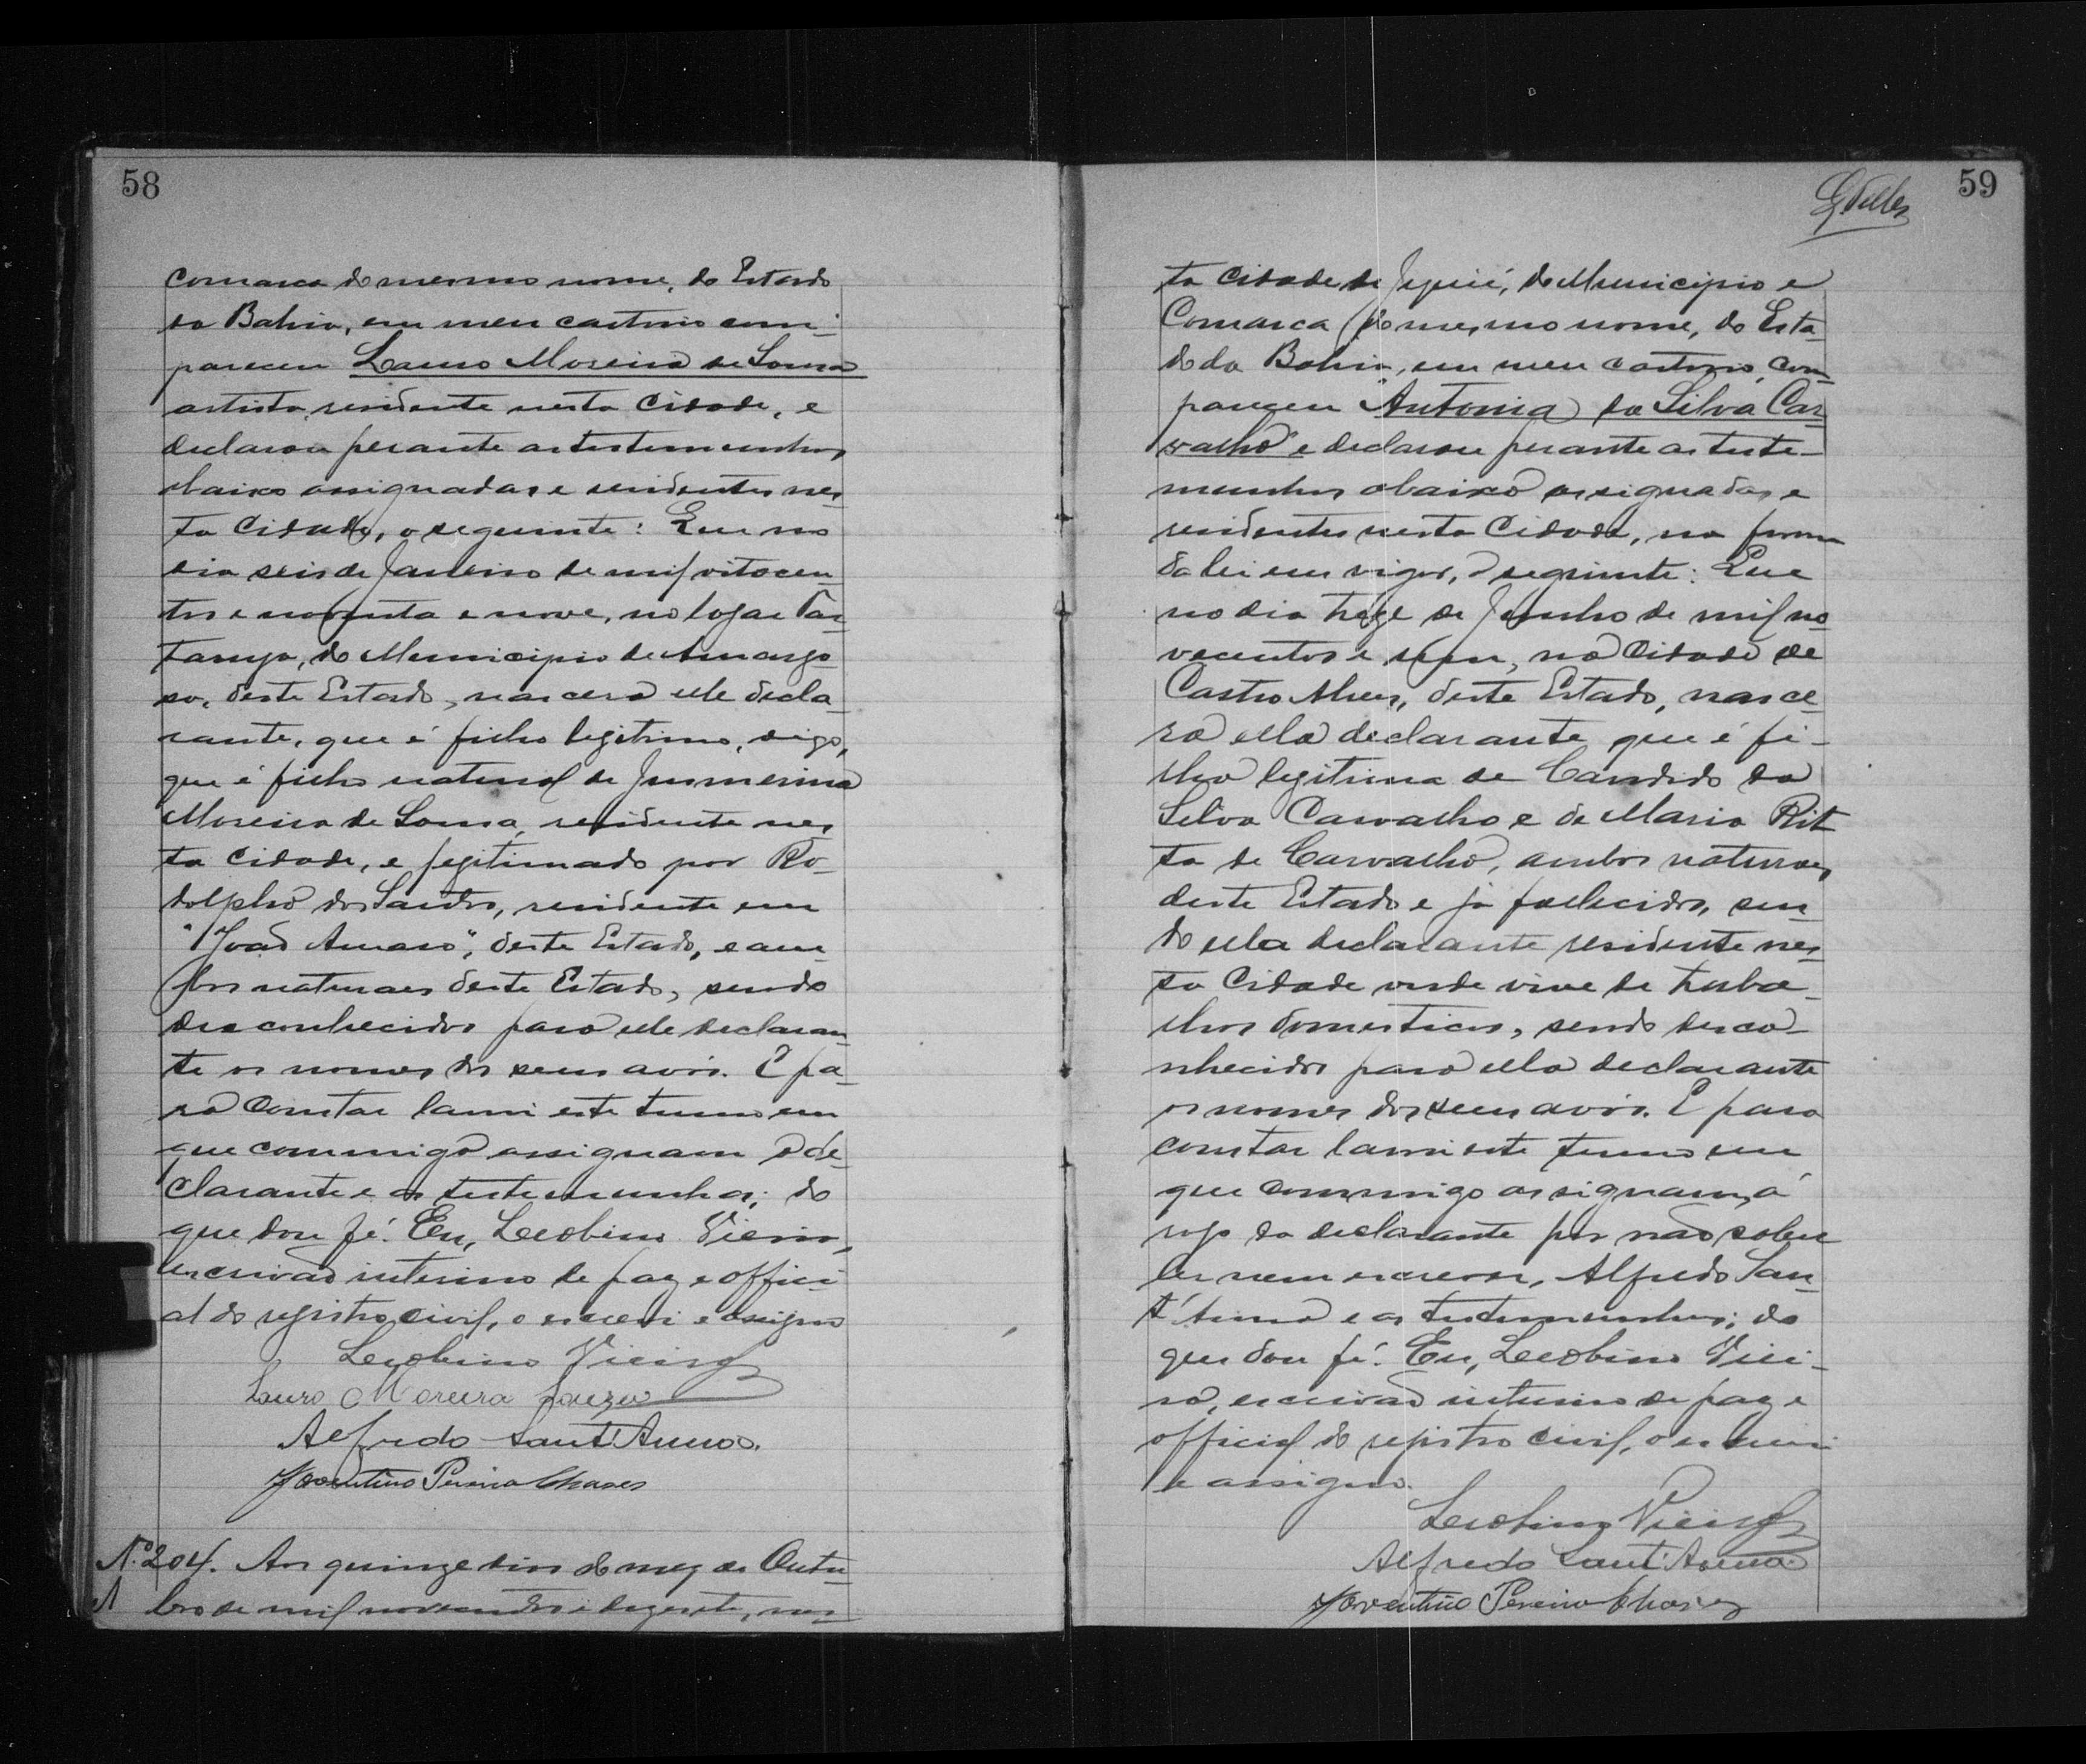 58
comarca do mesmo nome, do Estado
da Bahia, em meu cartorio com-
pareceu Lauro Moreira de Souza
artista, residente nesta Cidade, e
declarou perante as testemunhas
abaixo assignadas e residentes nes-
ta Cidade, o seguinte: Que no
dia seis de Janeiro de mil oitocen-
tos e noventa e nove, no logar Tar-
taruga, do Municipio de Amargo-
sa, deste Estado, nascera elle decla-
rante, que é filho legitimo, digo,
que é filho natural de
Moreira de Souza, residente nes-
ta Cidade, e legitimado por Ro-
dolpho dos Santos, residente em
"João Amaro", deste Estado, e am-
bos naturaes deste Estado, sendo
desconhecidos para elle declaran-
te os nomes dos seus avós. E pa-
ra constar lavrei este termo em
que commigo assignam o de-
clarante e as testemunhas; do
que dou fé. Eu, Leobino Vieira,
escrivão interino de paz e offici-
al do registro civil, o escrevi e assigno
Leobino Vieira
Lauro Moreira Souza
Alfredo Sant'Anna.
Joventino Pereira Chaves
N.º 204. Aos quinze dias do mez de Outu-
bro de mil novecentos e dezesete, nes-
59
ta Cidade de Jequié, do Municipio e
Comarca do mesmo nome, do Esta-
do da Bahia, em meu cartorio, com-
pareceu "Antonia da Silva Car-
valho" e declarou perante as teste-
munhas abaixo assignadas e
residentes nesta Cidade, na forma
da lei em vigor, o seguinte: Que
no dia treze de Junho de mil no-
vecentos e , na Cidade de
Castro Alves, deste Estado, nasce-
ra ella declarante que é fi-
lha legitima de Candido da
Silva Carvalho e de Maria Rit-
ta de Carvalho, ambos naturaes
deste Estado e já fallecidos, sen-
do ella declarante residente nes-
ta Cidade onde vive de traba-
lhos domesticos, sendo desco-
nhecidos para ella declarante
os nomes dos seus avós. E para
constar lavrei este termo em
que commigo assignam, á
rogo da declarante por não saber
ler nem escrever, Alfredo San-
t'Anna e as testemunhas; do
que dou fé. Eu, Leobino Viei-
ra, escrivão interino de paz e
official do registro civil, o escrevi
e assigno.
Leobino Vieira
Alfredo Sant'Anna
Joventino Pereira Chaves